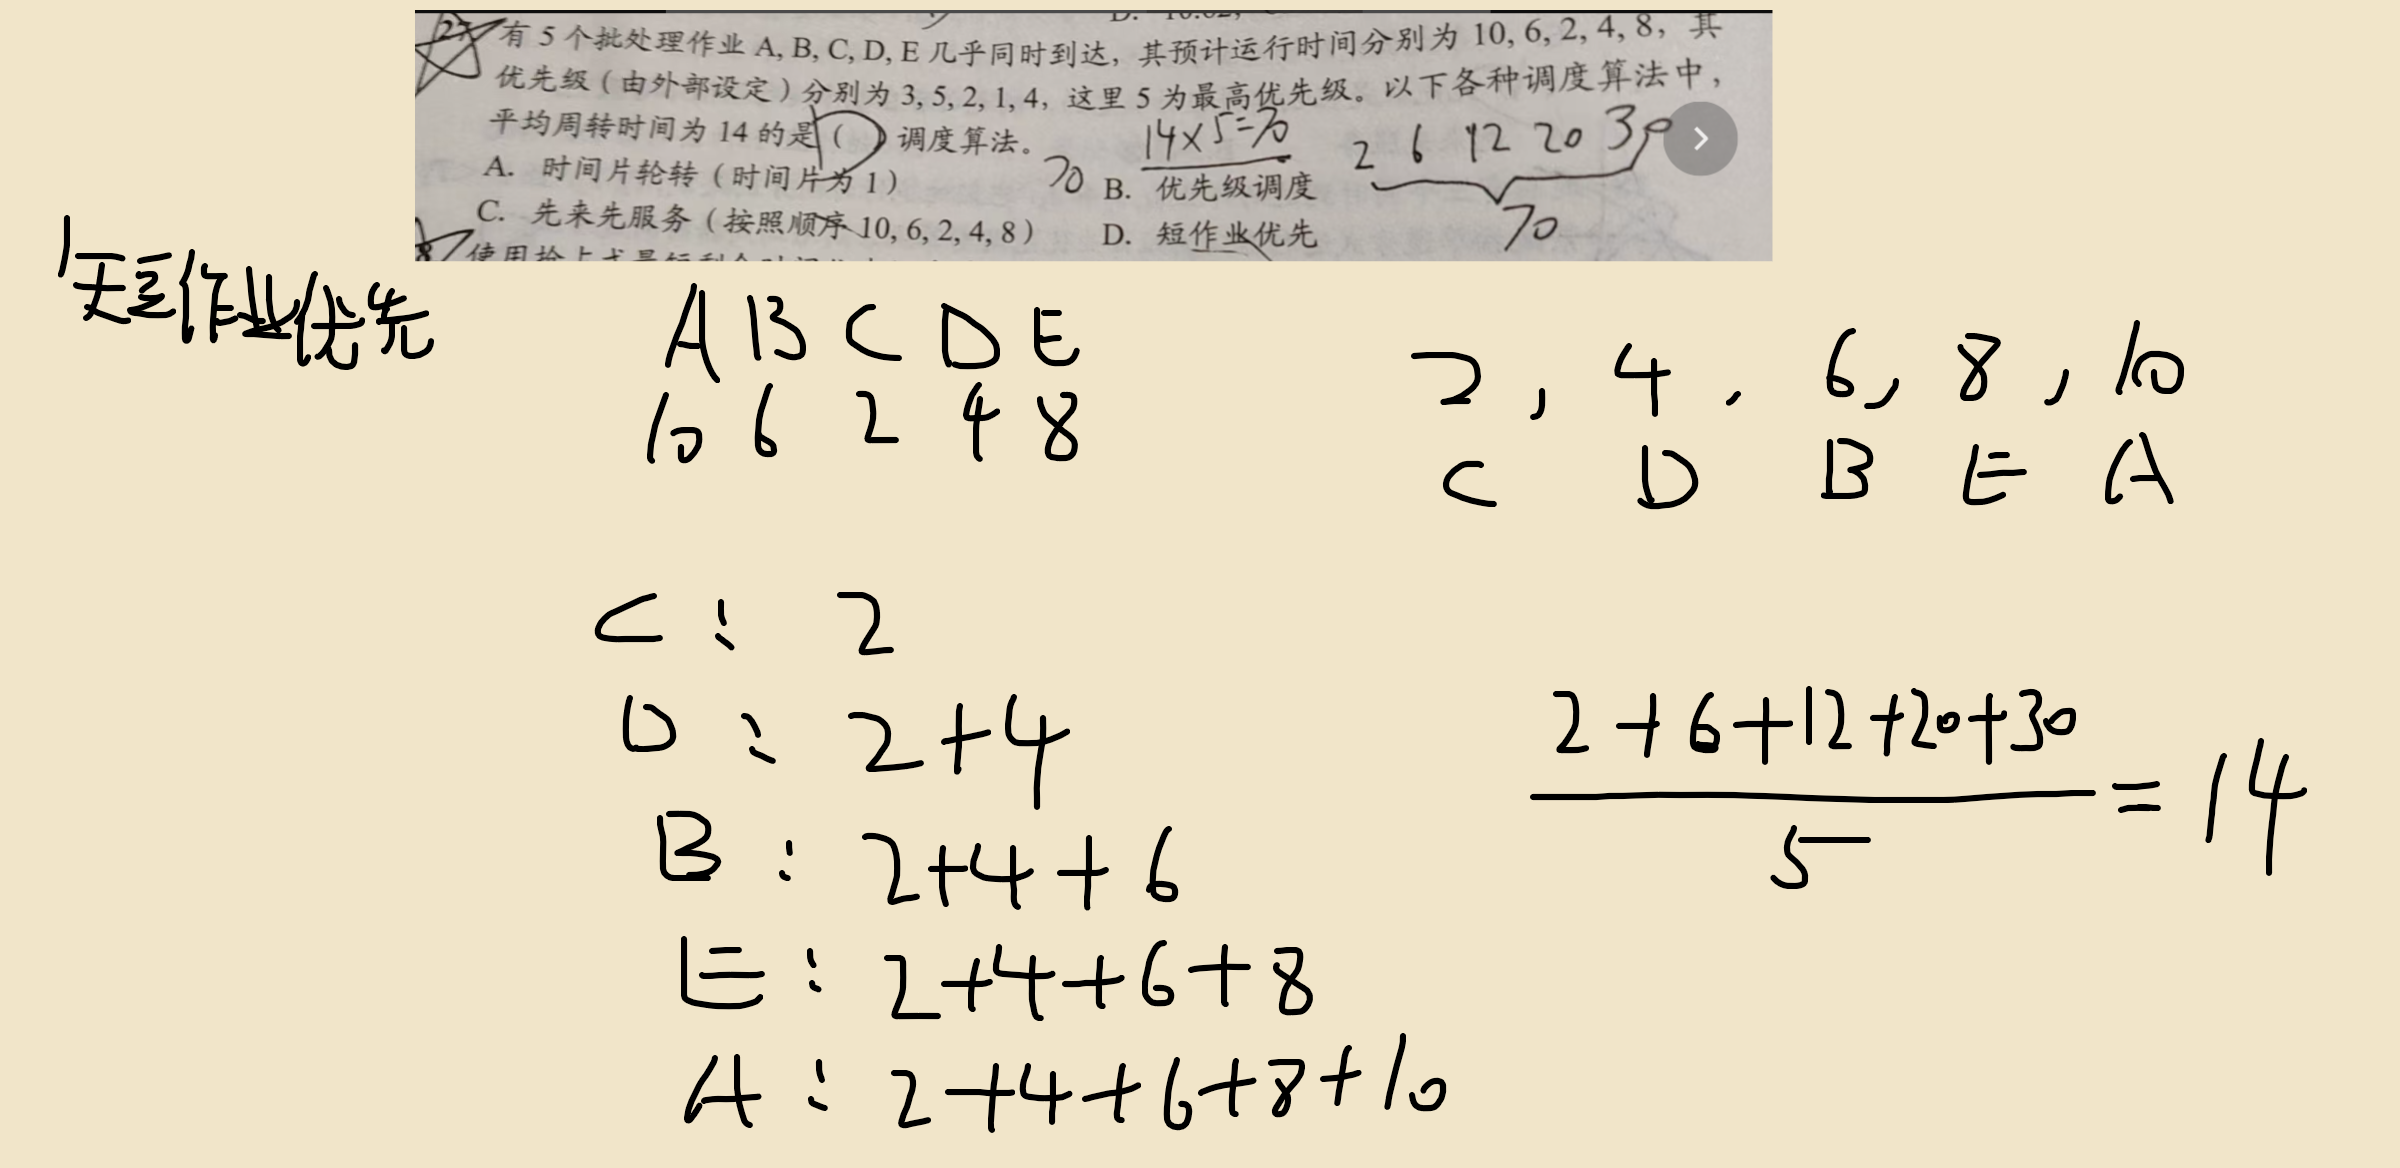 27 有 5 个批处理作业 A, B, C, D, E 几乎同时到达，其预计运行时间分别为 10, 6, 2, 4, 8，其
优先级（由外部设定）分别为 3, 5, 2, 1, 4，这里 5 为最高优先级。以下各种调度算法中，
平均周转时间为 14 的是（ D ）调度算法。
14×5=70
2 6 12 20 30
70
A. 时间片轮转（时间片为 1）
70
B. 优先级调度
C. 先来先服务（按照顺序 10, 6, 2, 4, 8）
D. 短作业优先
短作业优先
A B C D E
10 6 2 4 8
2, 4, 6, 8, 10
C D B E A
C: 2
D: 2+4
B: 2+4+6
E: 2+4+6+8
A: 2+4+6+8+10
2+6+12+20+30
= 14
5